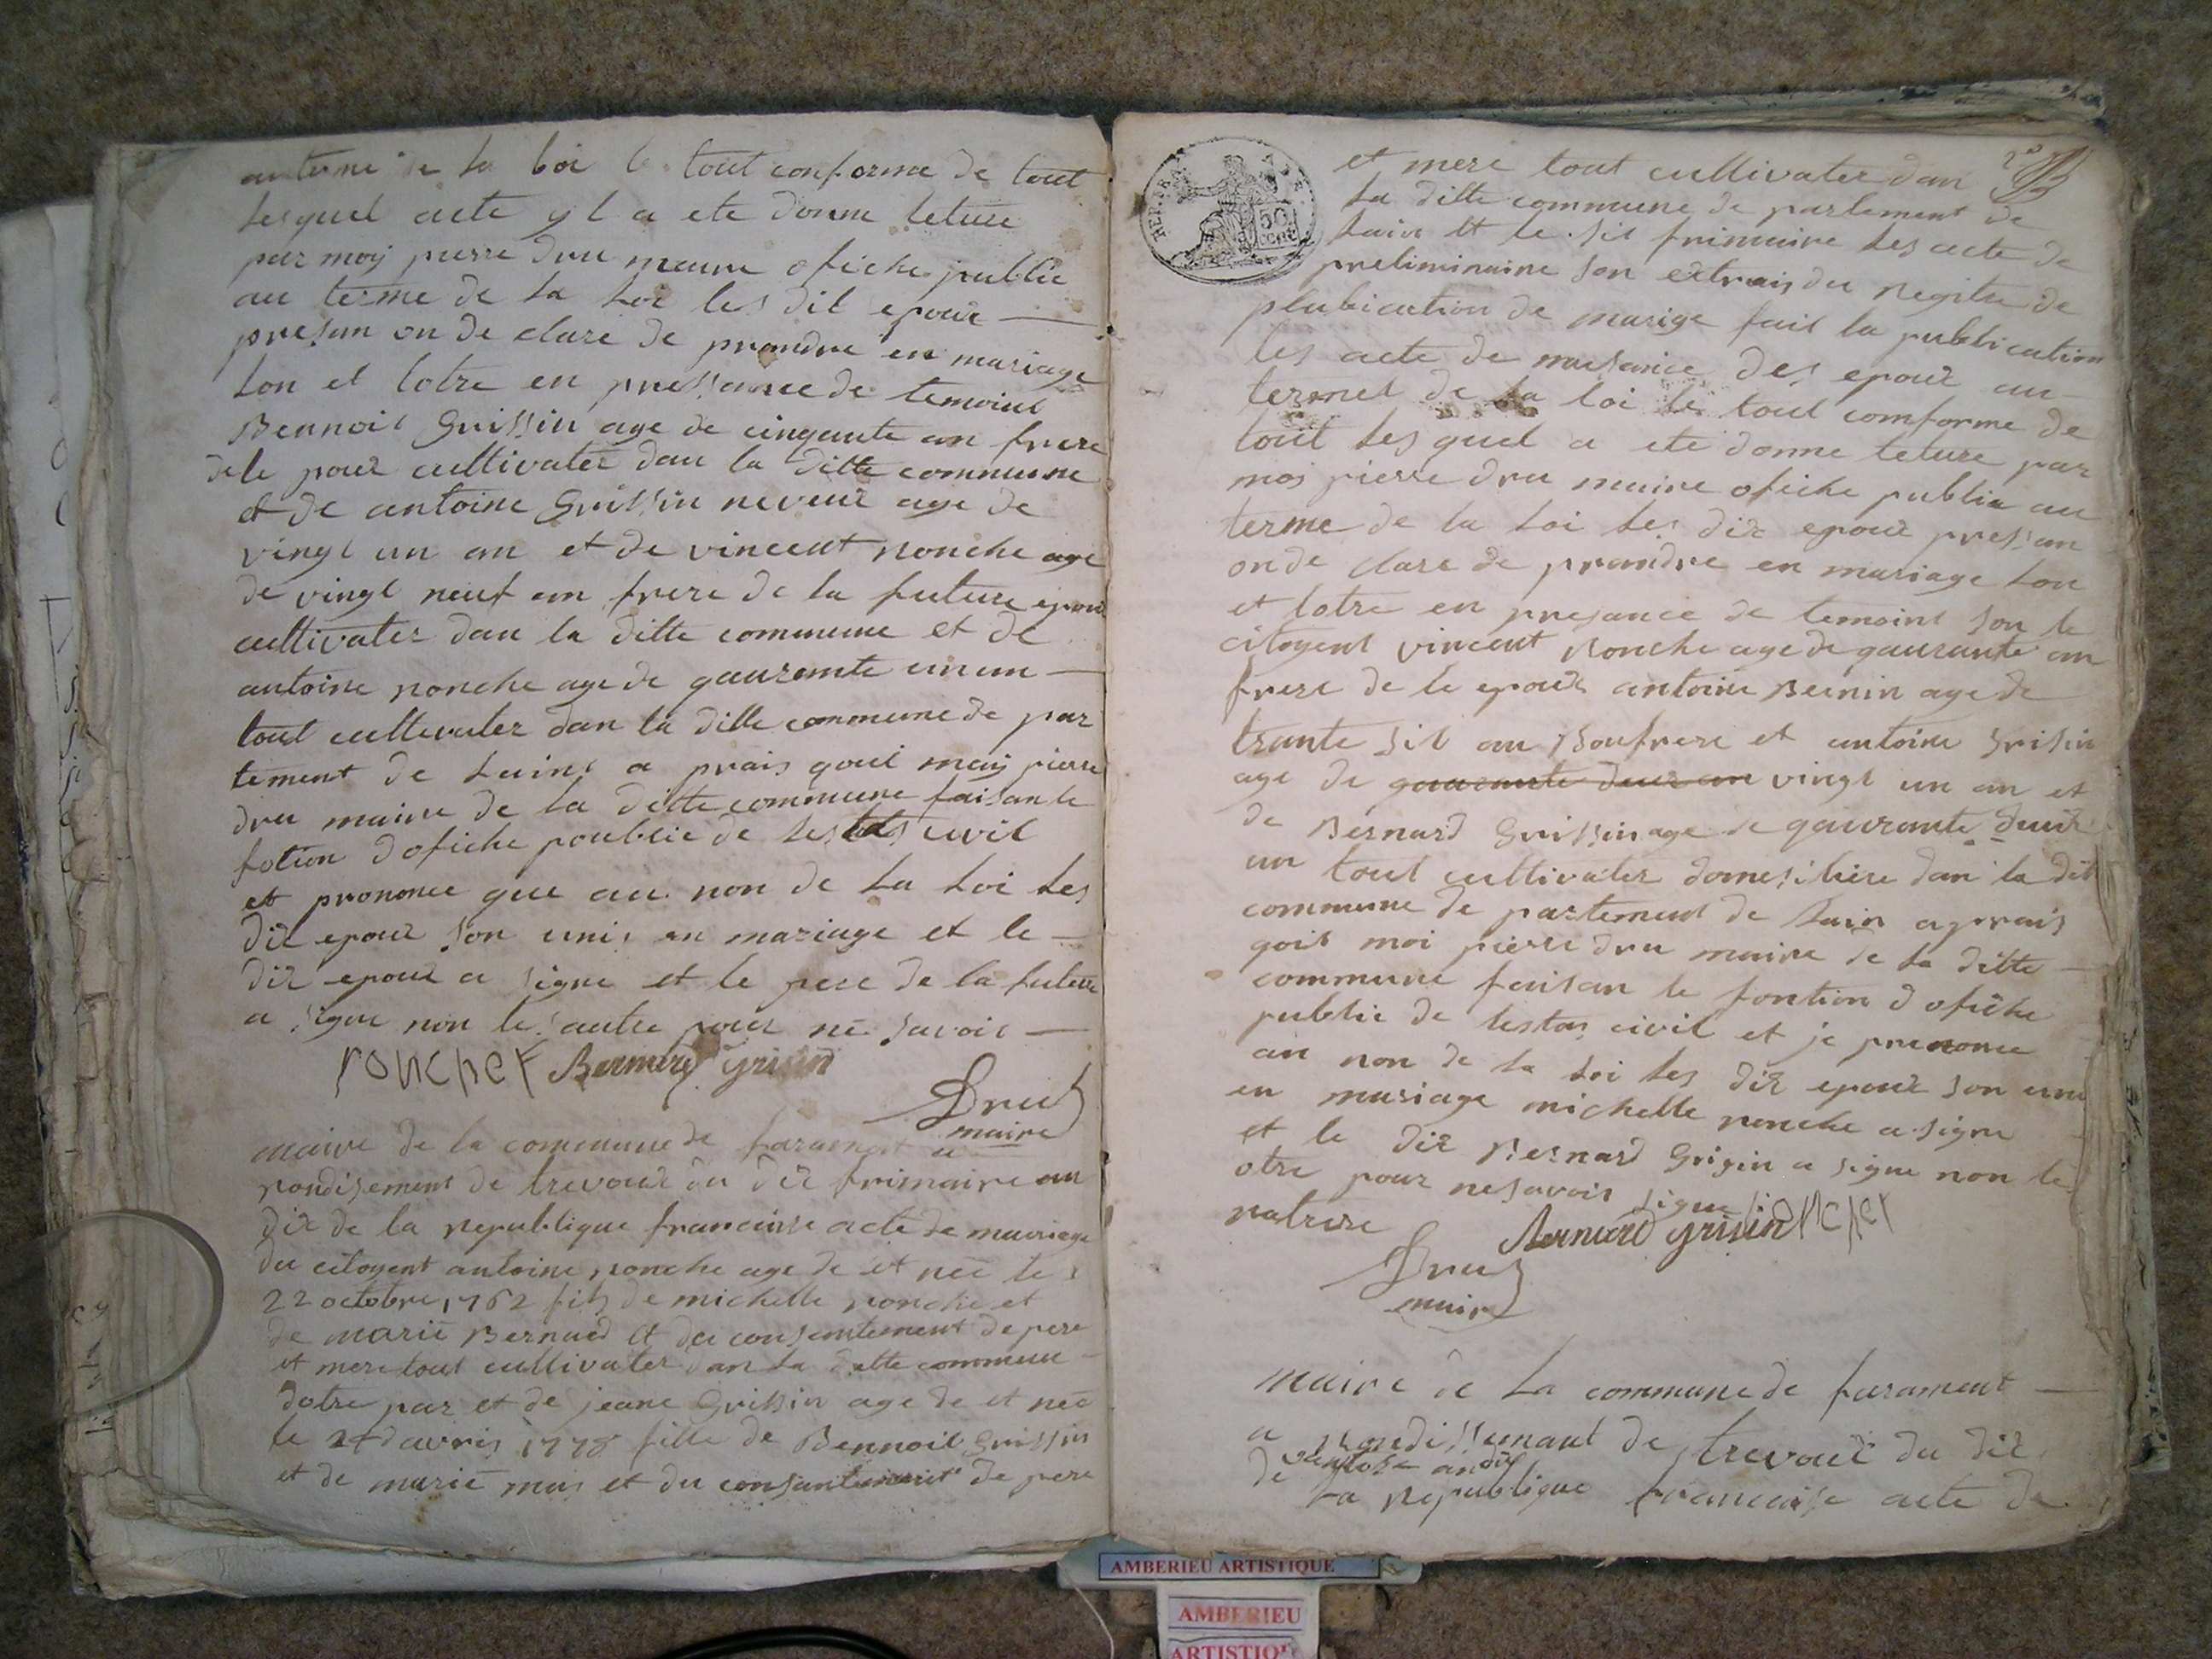 au terme de la loi le tout conforme de tout
lesquel acte yl a ete donne leture
par moy pierre dru maire ofiche public
au terme de la loi les dit epoux
presam on de clare de prandre en mariage
lon et lotre en pressance de temoint
Bennoit Grissin age de cinqante an frere
de le poux cultivater dan la ditte commune
et de antoine Grissin neveux age de
vingt un an et de vincent ronche age
de vingt neuf an frere de la future epou
cultivater dan la ditte commune et de
antoine ronche age de qaurante un an
tout cultivater dan la ditte commune de par
tement de Laint a prais qoui moy pierre
dru maire de la ditte commune faisan le
fotion dofiche poublic de les civil
et prononce que au non de la loi les
dix epoux son unis en mariage et le
dix epoux a signe et le pere de la future
a signe non les autre pour ne savoir
roncher Bernard grisin
Dru
maire
maire de la commune de faramant a
rondisement de trevoux du dix frimaire an
dix de la republique francaisse acte de mariage
du citoyent antoine ronche age de et nee le
22 octobre 1762 fils de michelle ronche et
de marie Bernard et du consentement de pere
et mere tout cultivater dan la ditte commune
dotre par et de jeane Grissin age de et nee
le davris 1778 fille de Bennoit Grissin
et de marie mas et du consantement de pere
et mere tout cultivater dan
la ditte commune de partement de
Lain et le sis frimaire les acte de
preliminaire son extrais du regitre de
plubication de marige fait la publication
les acte de naisance des epoux au
termet de la loi le tout comforme de
tout lesquel a ete donne leture par
moi pierre dru maire ofiche public au
terme de la loi les dix epoux pressan
on de clare de prandre en mariage lon
et lotre en presance de temoint son le
citoyent vincent ronche age de qaurante an
frere de le epoux antoine Bernin age de
trante sis an Boufrere et antoine Grisin
age de qaurante deux an vingt un an et
de Bernard Grissin age de qaurante deux
an tout cultivater domesiliere dan la dit
commune de partement de Lain aprrais
qoit moi pierre dru maire de la ditte
commune faisan le fontion dofiche
public de lestas civil et je prenonce
au non de la loi les dix epoux son uni
en mariage michelle ronche a signe
et le dix Bernard Grisin a signe non le
otre pour nesavoir signe
Bernard grisin
Dru
maire
maire de la commune de faramant
a rondissemant de trevoux du dix
ventose an dix
de la republique francaise acte de
50
AMBERIEU ARTISTIQUE
AMBERIEU
ARTISTIQUE